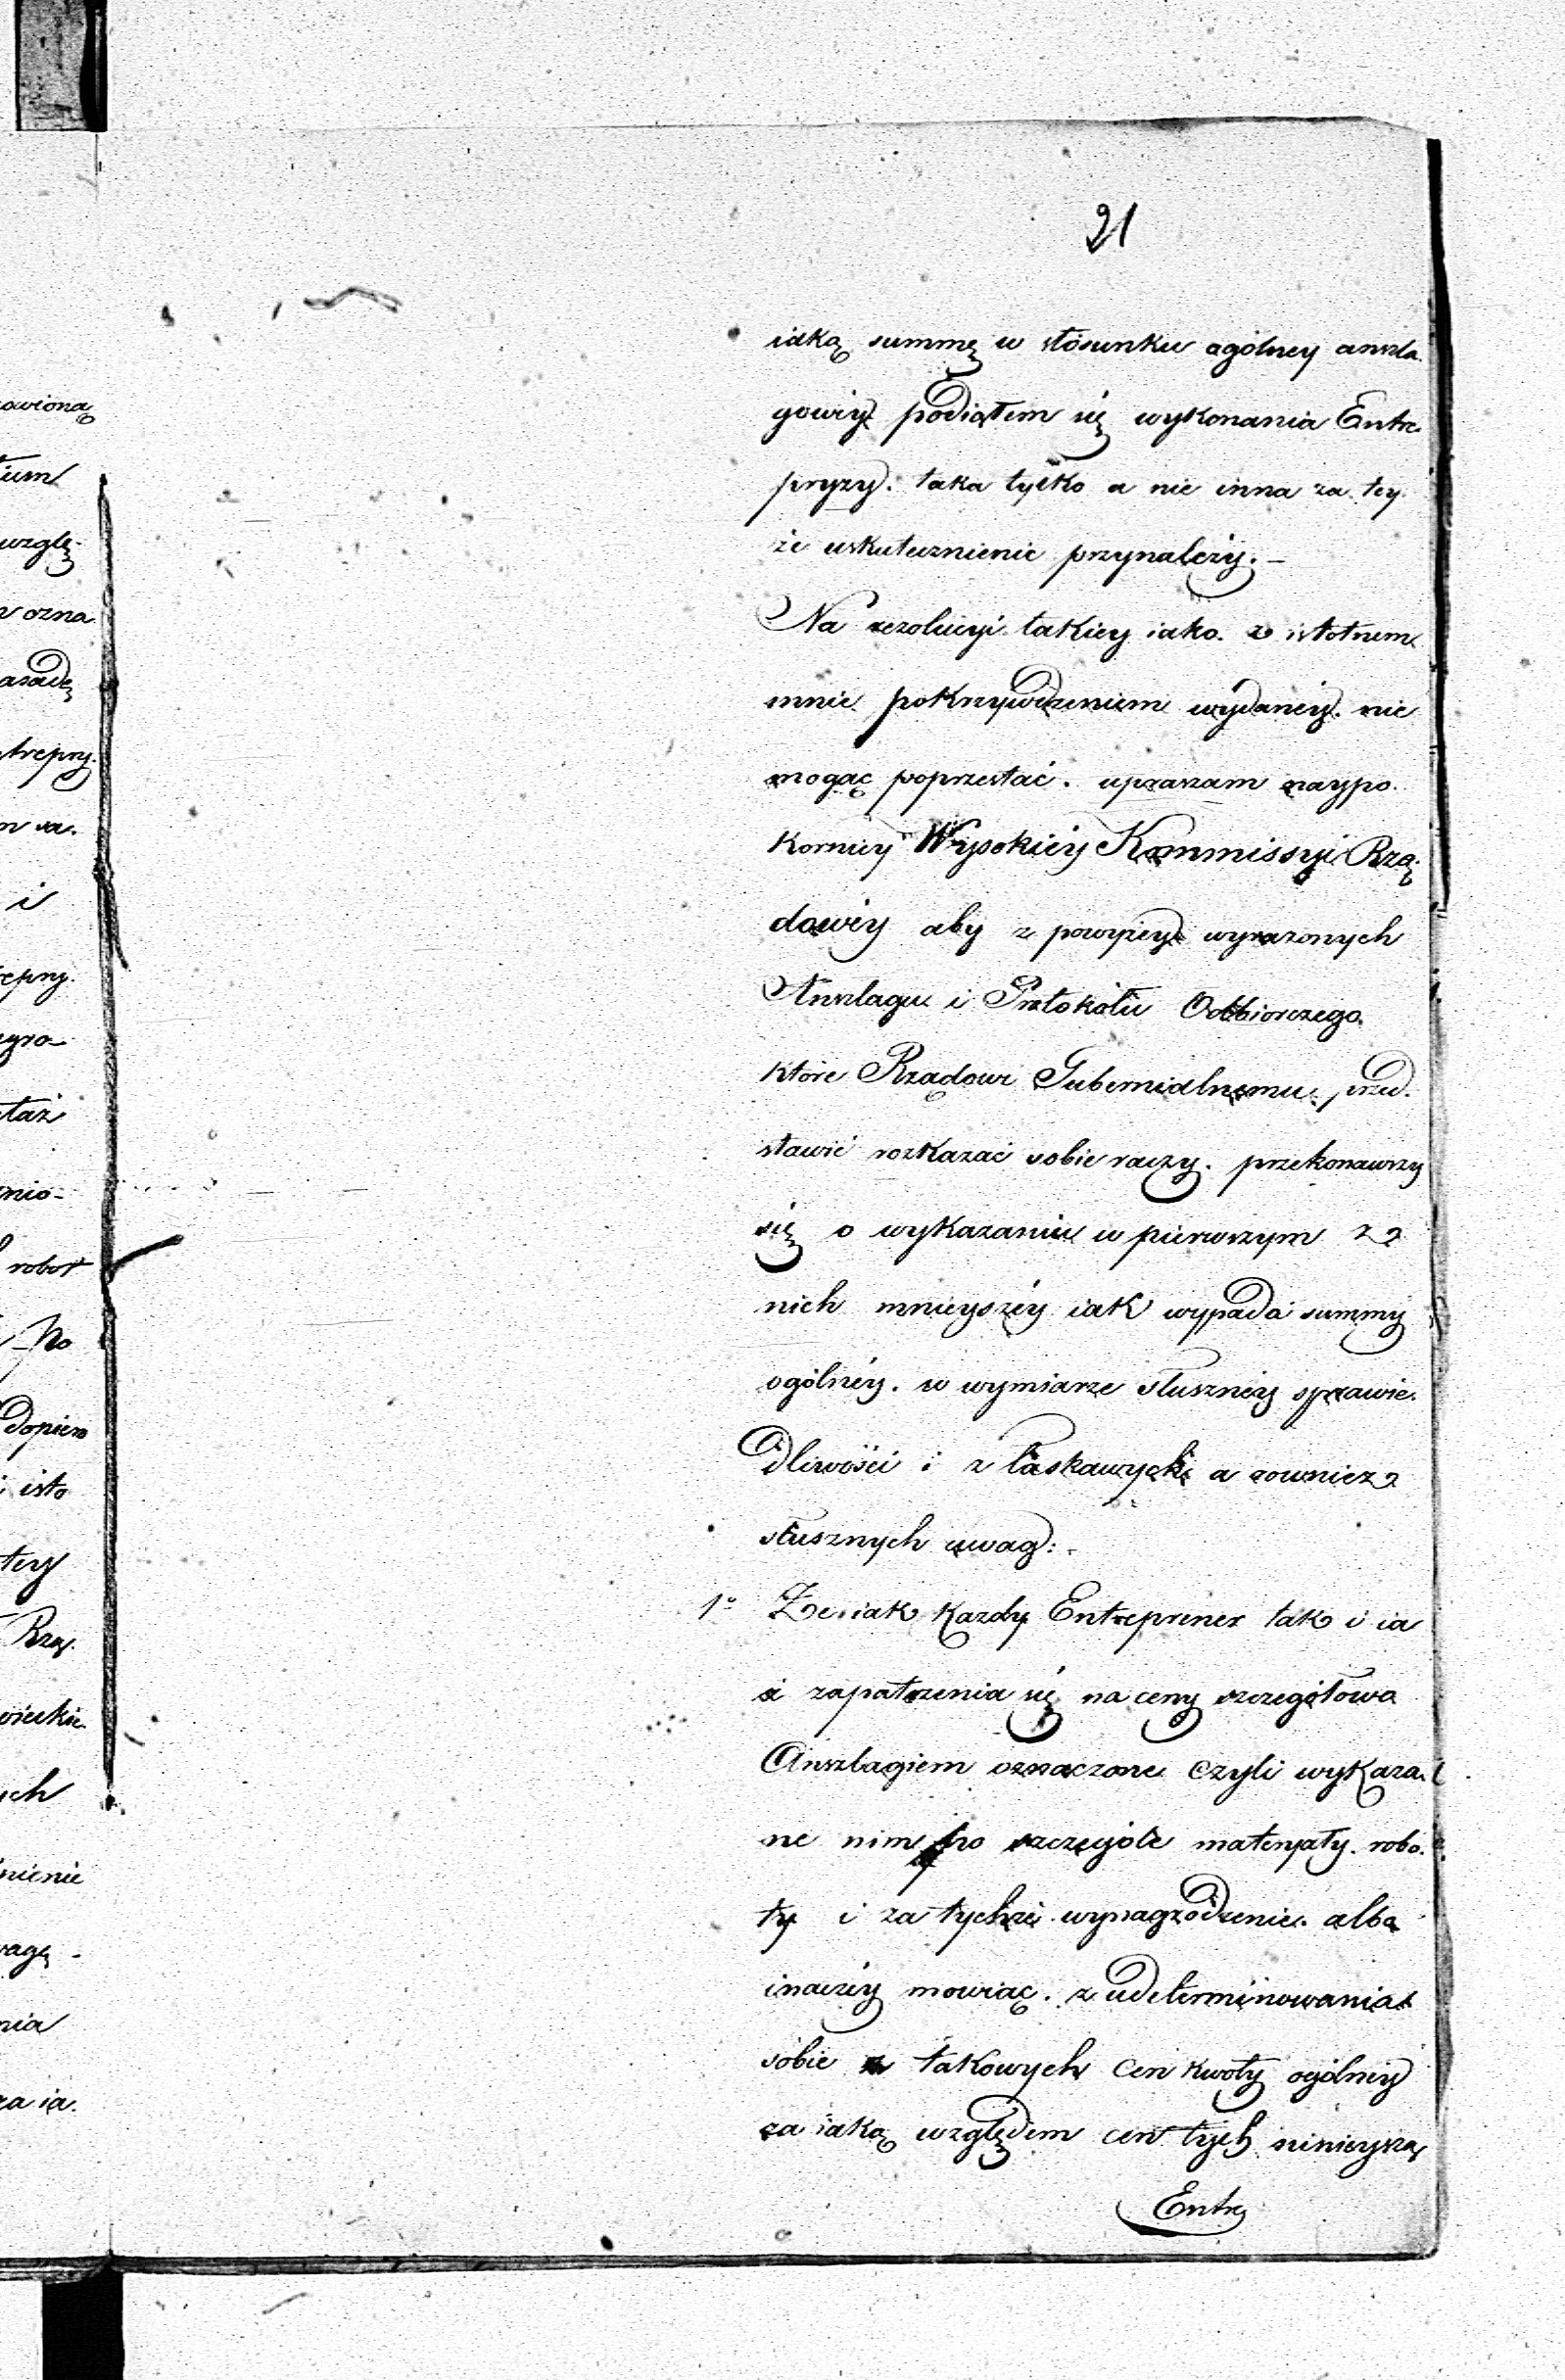 21
iaką summę w stósunku ogólney anszla-
gowéy podiąłem się wykonania Entre-
pryzy. taka tylko a nie inna za tey-
że uskutecznienie przynależy. –
Na rezolucyi takiey iako z istotnem
mnie pokrzywdzeniem wydanéy. nie
mogąc poprzestać. upraszam naypo-
korniey Wysokiéy Kommissyi Rzą-
dowéy aby z powyżey wyrazonych
Anszlagu i Protokółu Odbiorczego
które Rządowi Gubernialnemu przed-
stawić rozkazać sobie raczy. przekonawszy
się o wykazaniu w pierwszym z
nich mnieyszéy iak wypada summy
ogólnéy. w wymiarze słusznéy sprawie-
dliwości i z łaskawych a rownież
słusznych uwag: -
1° Że iak kazdy Entreprener tak i ia
z zapatrzenia się na ceny szczegółowo
Anszlagiem oznaczone czyli wykaza-
ne nim po szczególe materyały. robo-
ty i za tychże wynagrodzenie. albo
inaczéy mowiąc. z udeterminowania
sobie z takowych cen kwoty ogólney
za iaką względem cen tych ninieyszą
Entr
owioną
względ-
ozna
asadę
trepry-
i
robot
Po
dopiero
isto
tey
Rzą-
nienie
nia
za ia-